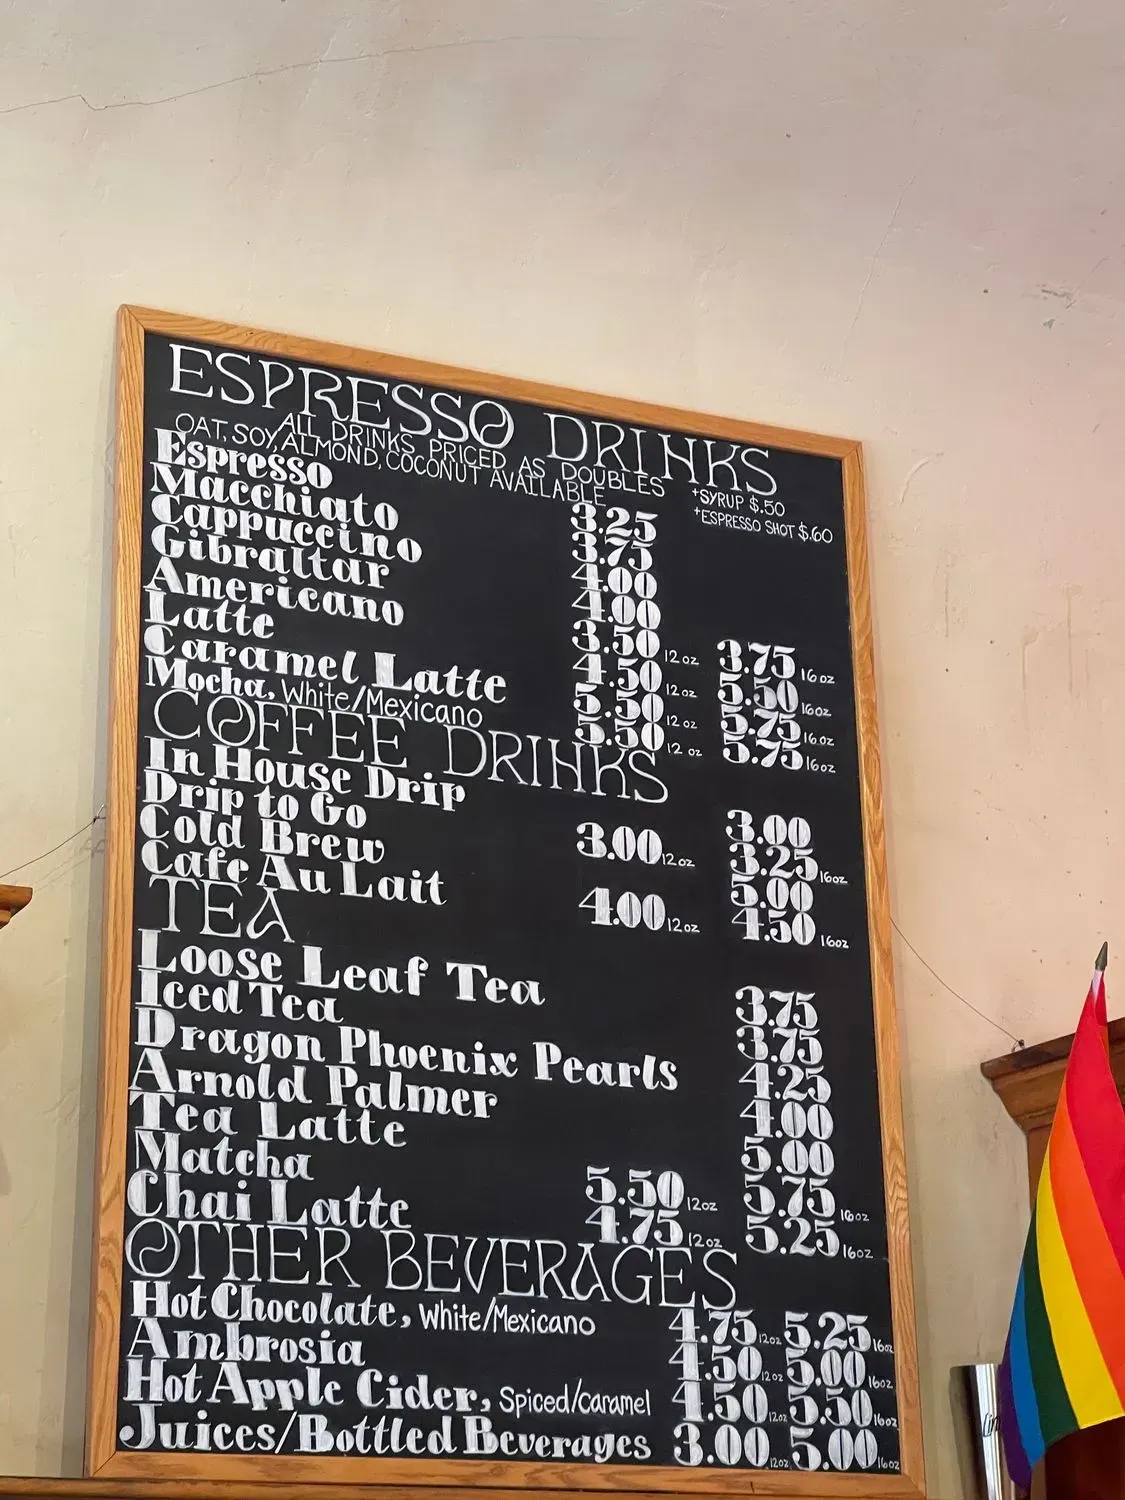 ESPRESSO DRINKS
ALL DRINKS PRICED AS DOUBLES
OAT, SOY, ALMOND, COCONUT AVAILABLE
+SYRUP $.50
+ESPRESSO SHOT $.60
Espresso 3.25
Macchiato 3.75
Cappuccino 4.00
Gibraltar 4.00
Americano 3.50 12oz 3.75 16oz
Latte 4.50 12oz 5.50 16oz
Caramel Latte 5.50 12oz 5.75 16oz
Mocha, White/Mexicano 5.50 12oz 5.75 16oz
COFFEE DRINKS
In House Drip 3.00
Drip to Go 3.00 12oz 3.25 16oz
Cold Brew 5.00
Cafe Au Lait 4.00 12oz 4.50 16oz
TEA
Loose Leaf Tea 3.75
Iced Tea 3.75
Dragon Phoenix Pearls 4.25
Arnold Palmer 4.00
Tea Latte 5.00
Matcha 5.50 12oz 5.75 16oz
Chai Latte 4.75 12oz 5.25 16oz
OTHER BEVERAGES
Hot Chocolate, White/Mexicano 4.75 12oz 5.25 16oz
Ambrosia 4.50 12oz 5.00 16oz
Hot Apple Cider, Spiced/caramel 4.50 12oz 5.50 16oz
Juices/Bottled Beverages 3.00 12oz 5.00 16oz